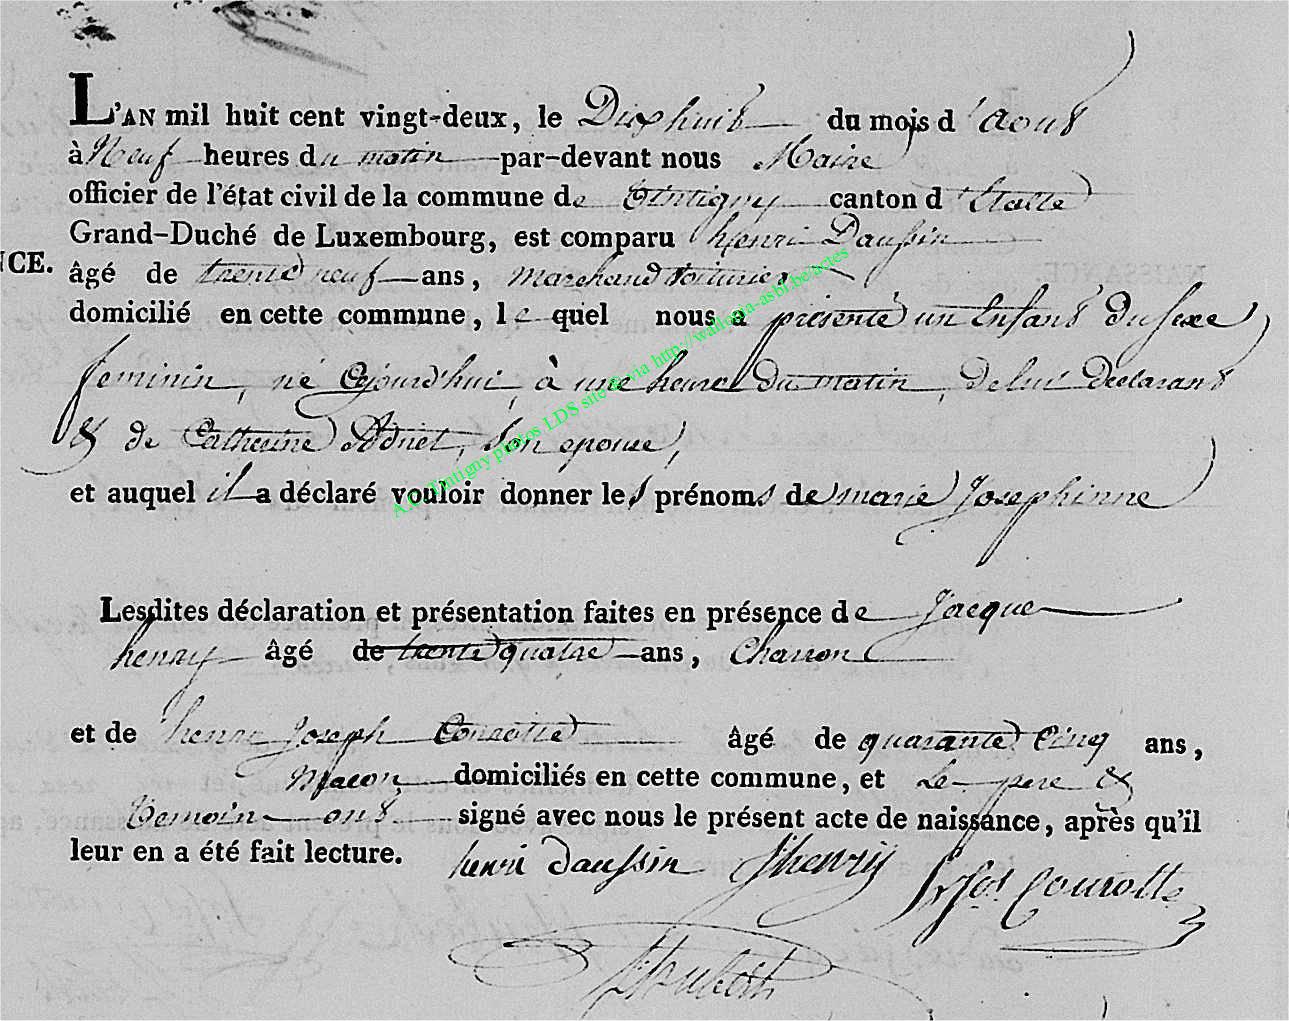 L'AN mil huit cent vingt-deux, le Dix huit du mois d'aout
à Neuf heures du matin par-devant nous Maire
officier de l'état civil de la commune de Tintigny canton d'Etalle
Grand-Duché de Luxembourg, est comparu henri Daussin
NCE.
âgé de trente neuf ans, marchand voiturier
domicilié en cette commune, lequel nous a présenté un Enfant du sexe
feminin, né aujourd'hui, à une heure du matin, de lui Déclarant
& de Catherine Adnet, son epouse,
et auquel il a déclaré vouloir donner les prénoms de marie Josephinne
A.C. Tintigny photos LDS site © via http://wallonia-asbl.be/actes
Lesdites déclaration et présentation faites en présence de Jacque
henry âgé de trente quatre ans, Charron
et de henri Joseph Courotte âgé de quarante Cinq ans,
Macon, domiciliés en cette commune, et Le pere &
Temoin ont signé avec nous le présent acte de naissance, après qu'il
leur en a été fait lecture.
henri daussin Jhenry hJos. Courotte